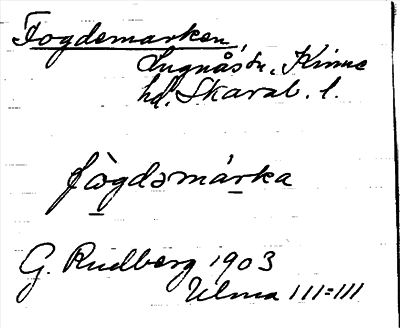 Fogdemarken,
Lugnås sn, Kinne
hd. Skarab. l.
fògdəmárka
G. Rudberg 1903
Ulma 111:111